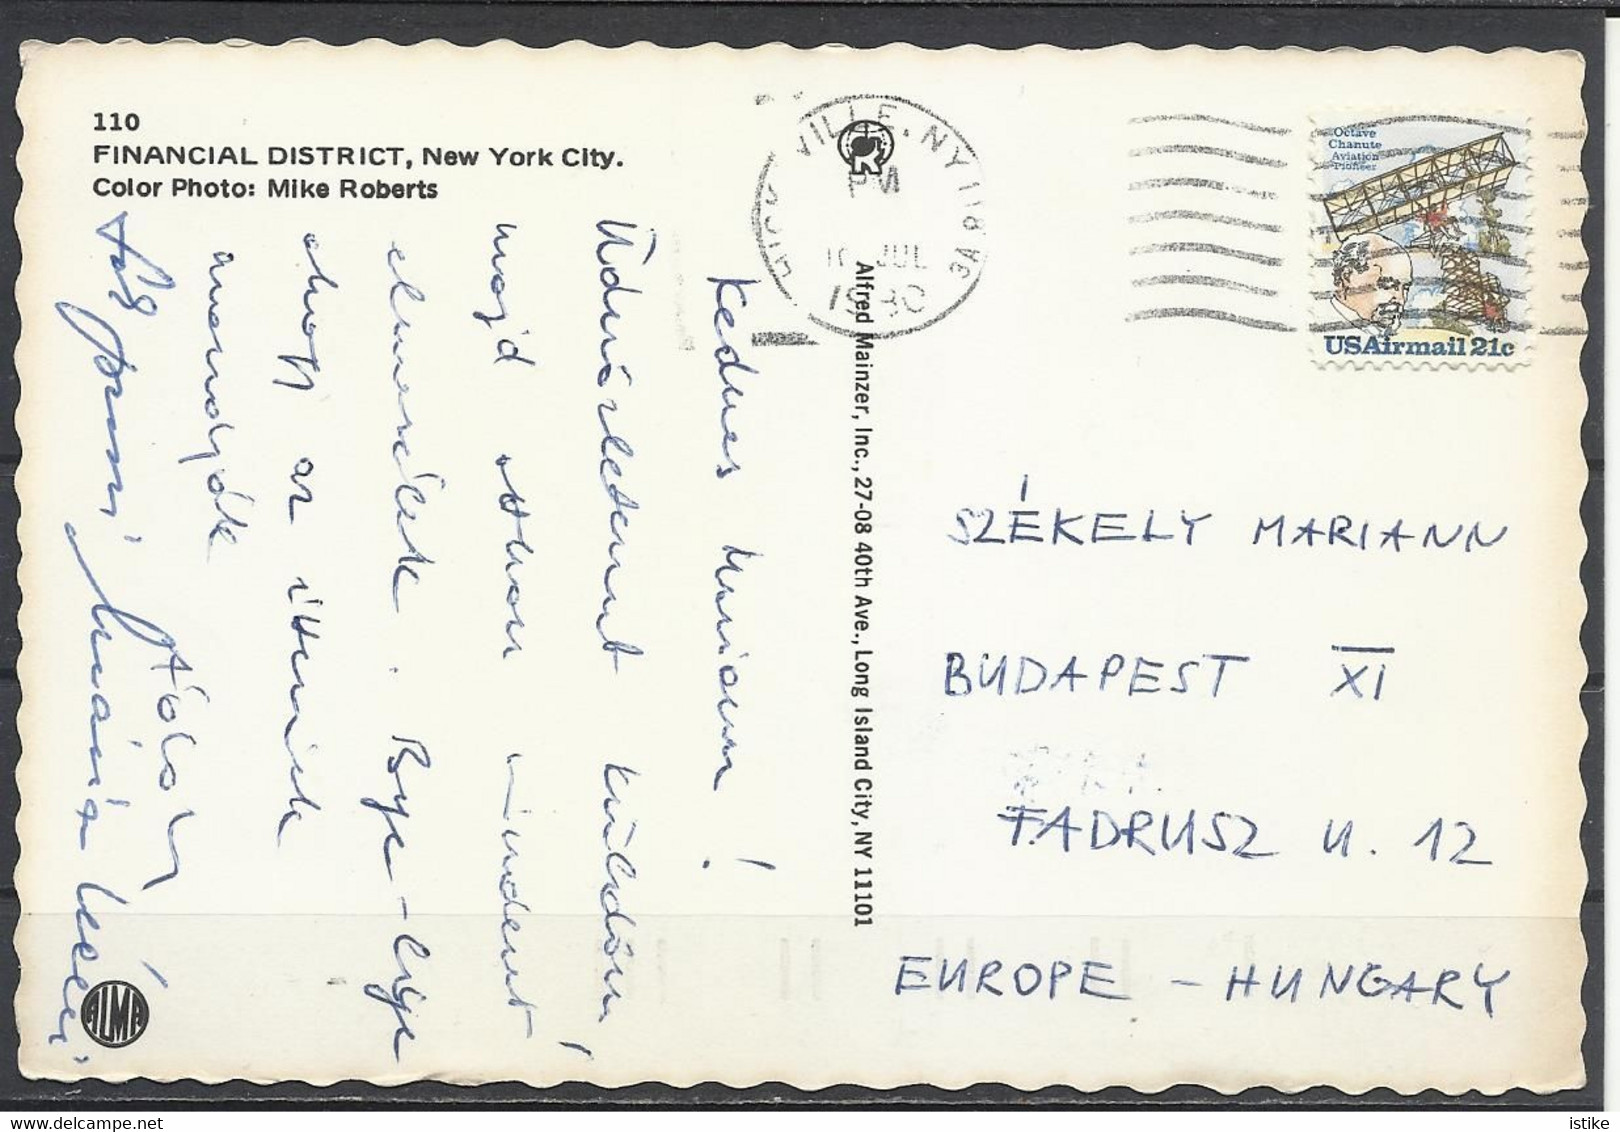 110
FINANCIAL DISTRICT, New York City.
Color Photo: Mike Roberts
Kedves Mariann!
Üdvözletemet küldöm
majd otthon mindent
elmesélek. Bye-bye
ahogy az itteniek
mondják
Sok puszi
Alfred Mainzer, Inc., 27-08 40th Ave., Long Island City, NY 11101
VILLE, NY 118
PM
JUL
1980
Octave
Chanute
Aviation
Pioneer
USAirmail 21c
SZÉKELY MARIANN
BUDAPEST XI
TADRUSZ U. 12
EUROPE - HUNGARY
ALMA
www.delcampe.net
istike